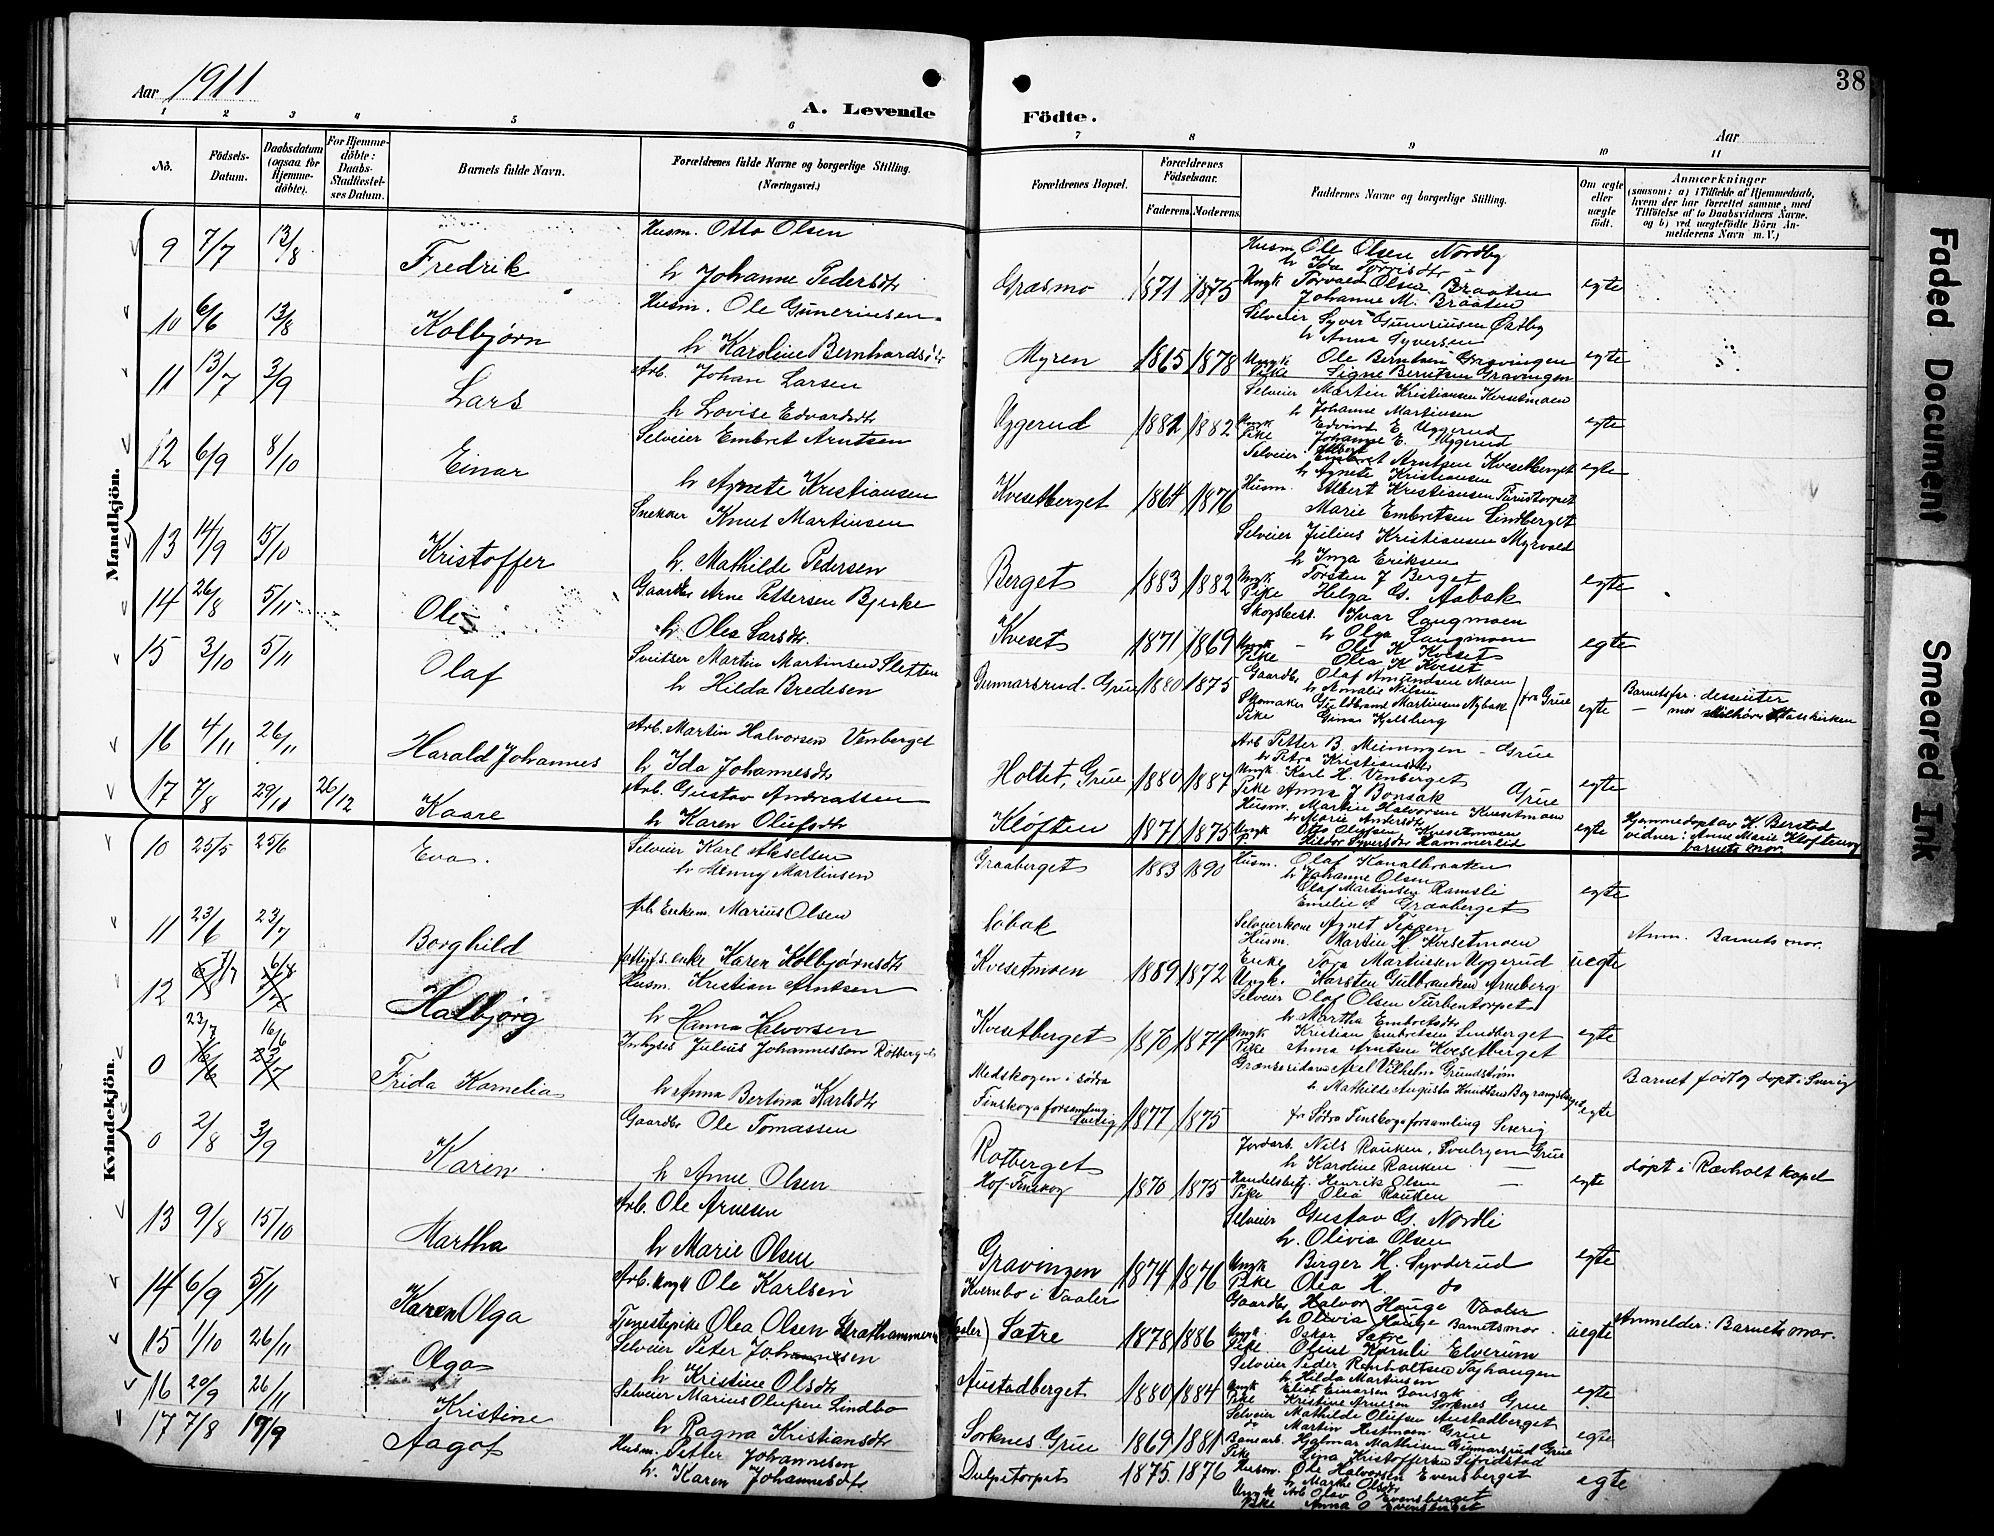 38
Aar 1911
A. Levende Födte.
Aar
1 2 3 4 5 6 7 8 9 10 11
No.
Födsels-Datum.
Daabsdatum (ogsaa for Hjemme-döbte).
For Hjemme-döbte: Daabs-Stadfæstel-ses Datum.
Barnets fulde Navn.
Forældrenes fulde Navne og borgerlige Stilling. (Næringsvei.)
Forældrenes Bopæl.
Forældrenes Födselsaar.
Faderens. Moderens.
Faddernes Navne og borgerlige Stilling.
Om ægte eller uægte födt.
Anmærkninger (saasom: a) i Tilfælde af Hjemmedaab, hvem der har forrettet samme, med Tilföielse af to Daabsvidners Navne, og b) ved uægtefödte Börn Anmelderens Navn m. V.)
Mandkjön.
9 7/7 13/8 Fredrik
Husm. Otto Olsen
h Johanne Pedersdtr
Græsmo 1871 1875
Husm Ole Olsen Nordby
h Ida
Ungk Torvald Olsen Braaten
Johanne M. Braaten
egte
10 6/6 13/8 Kolbjørn
Husm. Ole Gunerinsen
h Karoline Bernhardsdtr
Myren 1865 1878
Selveier Syver Gunerinsen Østby
h Anna Syversen
Ungk Ole Berntsen Gravingen
Pike Signe Berntsen Gravingen
egte
11 13/7 3/9 Lars
Arb. Johan Larsen
h Lovise Edvardsdtr
Uggerud 1882 1882
Selveier Martin Kristiansen Kvesetmoen
h Johanne Martinsen
Ungk Edvind E. Uggerud
Pike Johanne E. Uggerud
egte
12 6/9 8/10 Einar
Selveier Embret Arntsen
h Agnete Kristiansen
Kvesetberget 1864 1876
Selveier Arntsen Kvesetberget
h Agnete Kristiansen
Husm. Albert Kristiansen
Marie Embretsen Lindberget
egte
13 14/9 15/10 Kristoffer
Snekker Knut Martinsen
h. Mathilde Pedersen
Berget 1883 1882
Selveier Julius Kristiansen Myrvold
h Inga Eriksen
Ungk Torsten J Berget
Pike Helga G. Aabak
egte
14 26/8 5/11 Ole
Gaardbr Arne Pettersen Bjerke
h Olea Larsdtr.
Kveset 1871 1869
Skogsbest. Ivar Langmoen
h Olga Langmoen
Ungk - Ole K. Kveset
Pike Olea K Kveset
egte
15 3/10 5/11 Olaf
Sveitser Martin Martinsen Sletten
h Hilda Bredesen
Gunnarsrud - Grue 1880 1875
Gaardbr Olaf Amundsen Moen
h Amalie Nilsen
Skomaker Guldbrand Martinsen Nybak
Pike Gina Kjelsberg
fra Grue
egte
Barnets far dissenter
— mor
16 4/11 26/11 Harald Johannes
Arb. Martin Halvorsen Venberget
h Ida Johannesdtr
Holtet, Grue 1880 1887
Arb Petter B. Meiningen - Grue
h Petra Kristiansdtr
Ungk Karl H. Venberget
Pike Anna J Bonsak Grue
egte
17 7/8 29/10 26/12 Kaare
Arb. Gustav Andreassen
h Karen Olufsdtr
Kløften 1871 1875
Husm. Martin Halvorsen Kvesetmoen
h Marie Andersdtr
Ungk Otto Olufsen Kvesetmoen
P. Hilda Syversdtr Hammerlid
egte
Hjemmedøpt av K. Berstad
vidner: Anne Marie Kløften og
barnets mor.
Kvindekjön.
10 25/5 25/6 Eva.
Selveier Karl Akselsen
h Henny Martinsen
Graaberget 1883 1890
Husm. Olaf Kanalbraaten
h Johanne Olsen
Olaf Martinsen Ramsli
Emelie A. Graaberget
egte
11 23/6 23/7 Borghild
Arb Enkem. Marius Olsen
fattigfs. enke Karen Kolbjørnsdtr
Løbak
Kvesetmoen 1889 1872
Selveierkone Agnet Teppen
Husm. Martin H. Kvesetmoen
Enke Tora Martinsen Uggerud
Ungk. Karsten Gulbrandsen Arneberg
uegte
Anm. Barnets mor.
12 7/7 6/8 Halbjørg
Husm. Kristian Arntsen
h Hanna Halvorsen
Kvesetberget 1870 1874
Selveier Olaf Olsen Turbentorpet
h Martha Embretsdtr
Ungk Kristian Embretsen Lindberget
Pike Anna Arntsen Kvesetberget
egte
0 23/7 16/6 Frida Kornelia
Inhyses Julius Johannesson Rotberget
h Anna Bertina Karlsdtr
Medskogen i södra Finskoga forsamling Sverig 1877 1875
Grænseridare Axel Vilhelm Grundström
h. Mathilde Augusta
fr Södra Finskoga forsamling Sverig
egte
Barnet født og døpt i Sverig
0 2/8 3/9 Karen
Gaardbr Ole Tomassen
h Anne Olsen
Rotberget
Hof Finskog 1870 1875
Jordarb. Nils Rauken, Svulryen Grue
h Karoline Rauken —
Handelsbetj. Henrik Olsen —
Pike Olea Rauken
egte
døpt i Revholt kapel
13 9/8 15/10 Martha
Arb. Ole Arnesen
h Marie Olsen
Gravingen 1874 1876
Selveier Gustav G. Nordli
h. Olivia Olsen
Ungk Birger H. Synderud
Pike Olea H. do
egte
14 6/9 5/11 Karen Olga
Arb. Ungk Ole Karlsen
Tjenestepike Olea Olsen
Kvernbo i Vaaler
Sætre 1878 1886
Gaardbr Halvor Hauge Vaaler
h Olivia Hauge Barnets mor
Ungk. Oskar Sætre
Pike Oline Karnli Elverum
uegte
Anmelder: Barnets mor.
15 1/10 26/11 Olga
Selveier Peter Johannesen
h Kristine Olsdtr
Austadberget 1880 1884
Selveier Peder Renholtsen Tajhaugen
h Hilda Martinsen
Ungk Eliot Einarsen Bonsak
Pike Kristine Arnesen Sorknes Grue
egte
16 20/9 26/11 Kristine
Selveier Marius Olufsen Lindbo
h Ragna Kristiansdtr
Sorknes Grue 1869 1881
Selveier Mathilde Olufsen Austadberget
do Martin Hestmoen Grue
Banearb. Hjalmar Mathisen Gunnarsrud Grue
Pike Lina Kristoffersen
egte
17 7/8 17/9 Aagot
Husm. Petter Johannesen
h. Karen Johannesdtr
Dulpetorpet 1875 1876
Husm. Ole Halvorsen Evensberget
h Marthe Olsdtr
Ungk Arb Olav O Evensberget
Pike Anna O Evensberget
egte
Faded Document
Smeared Ink